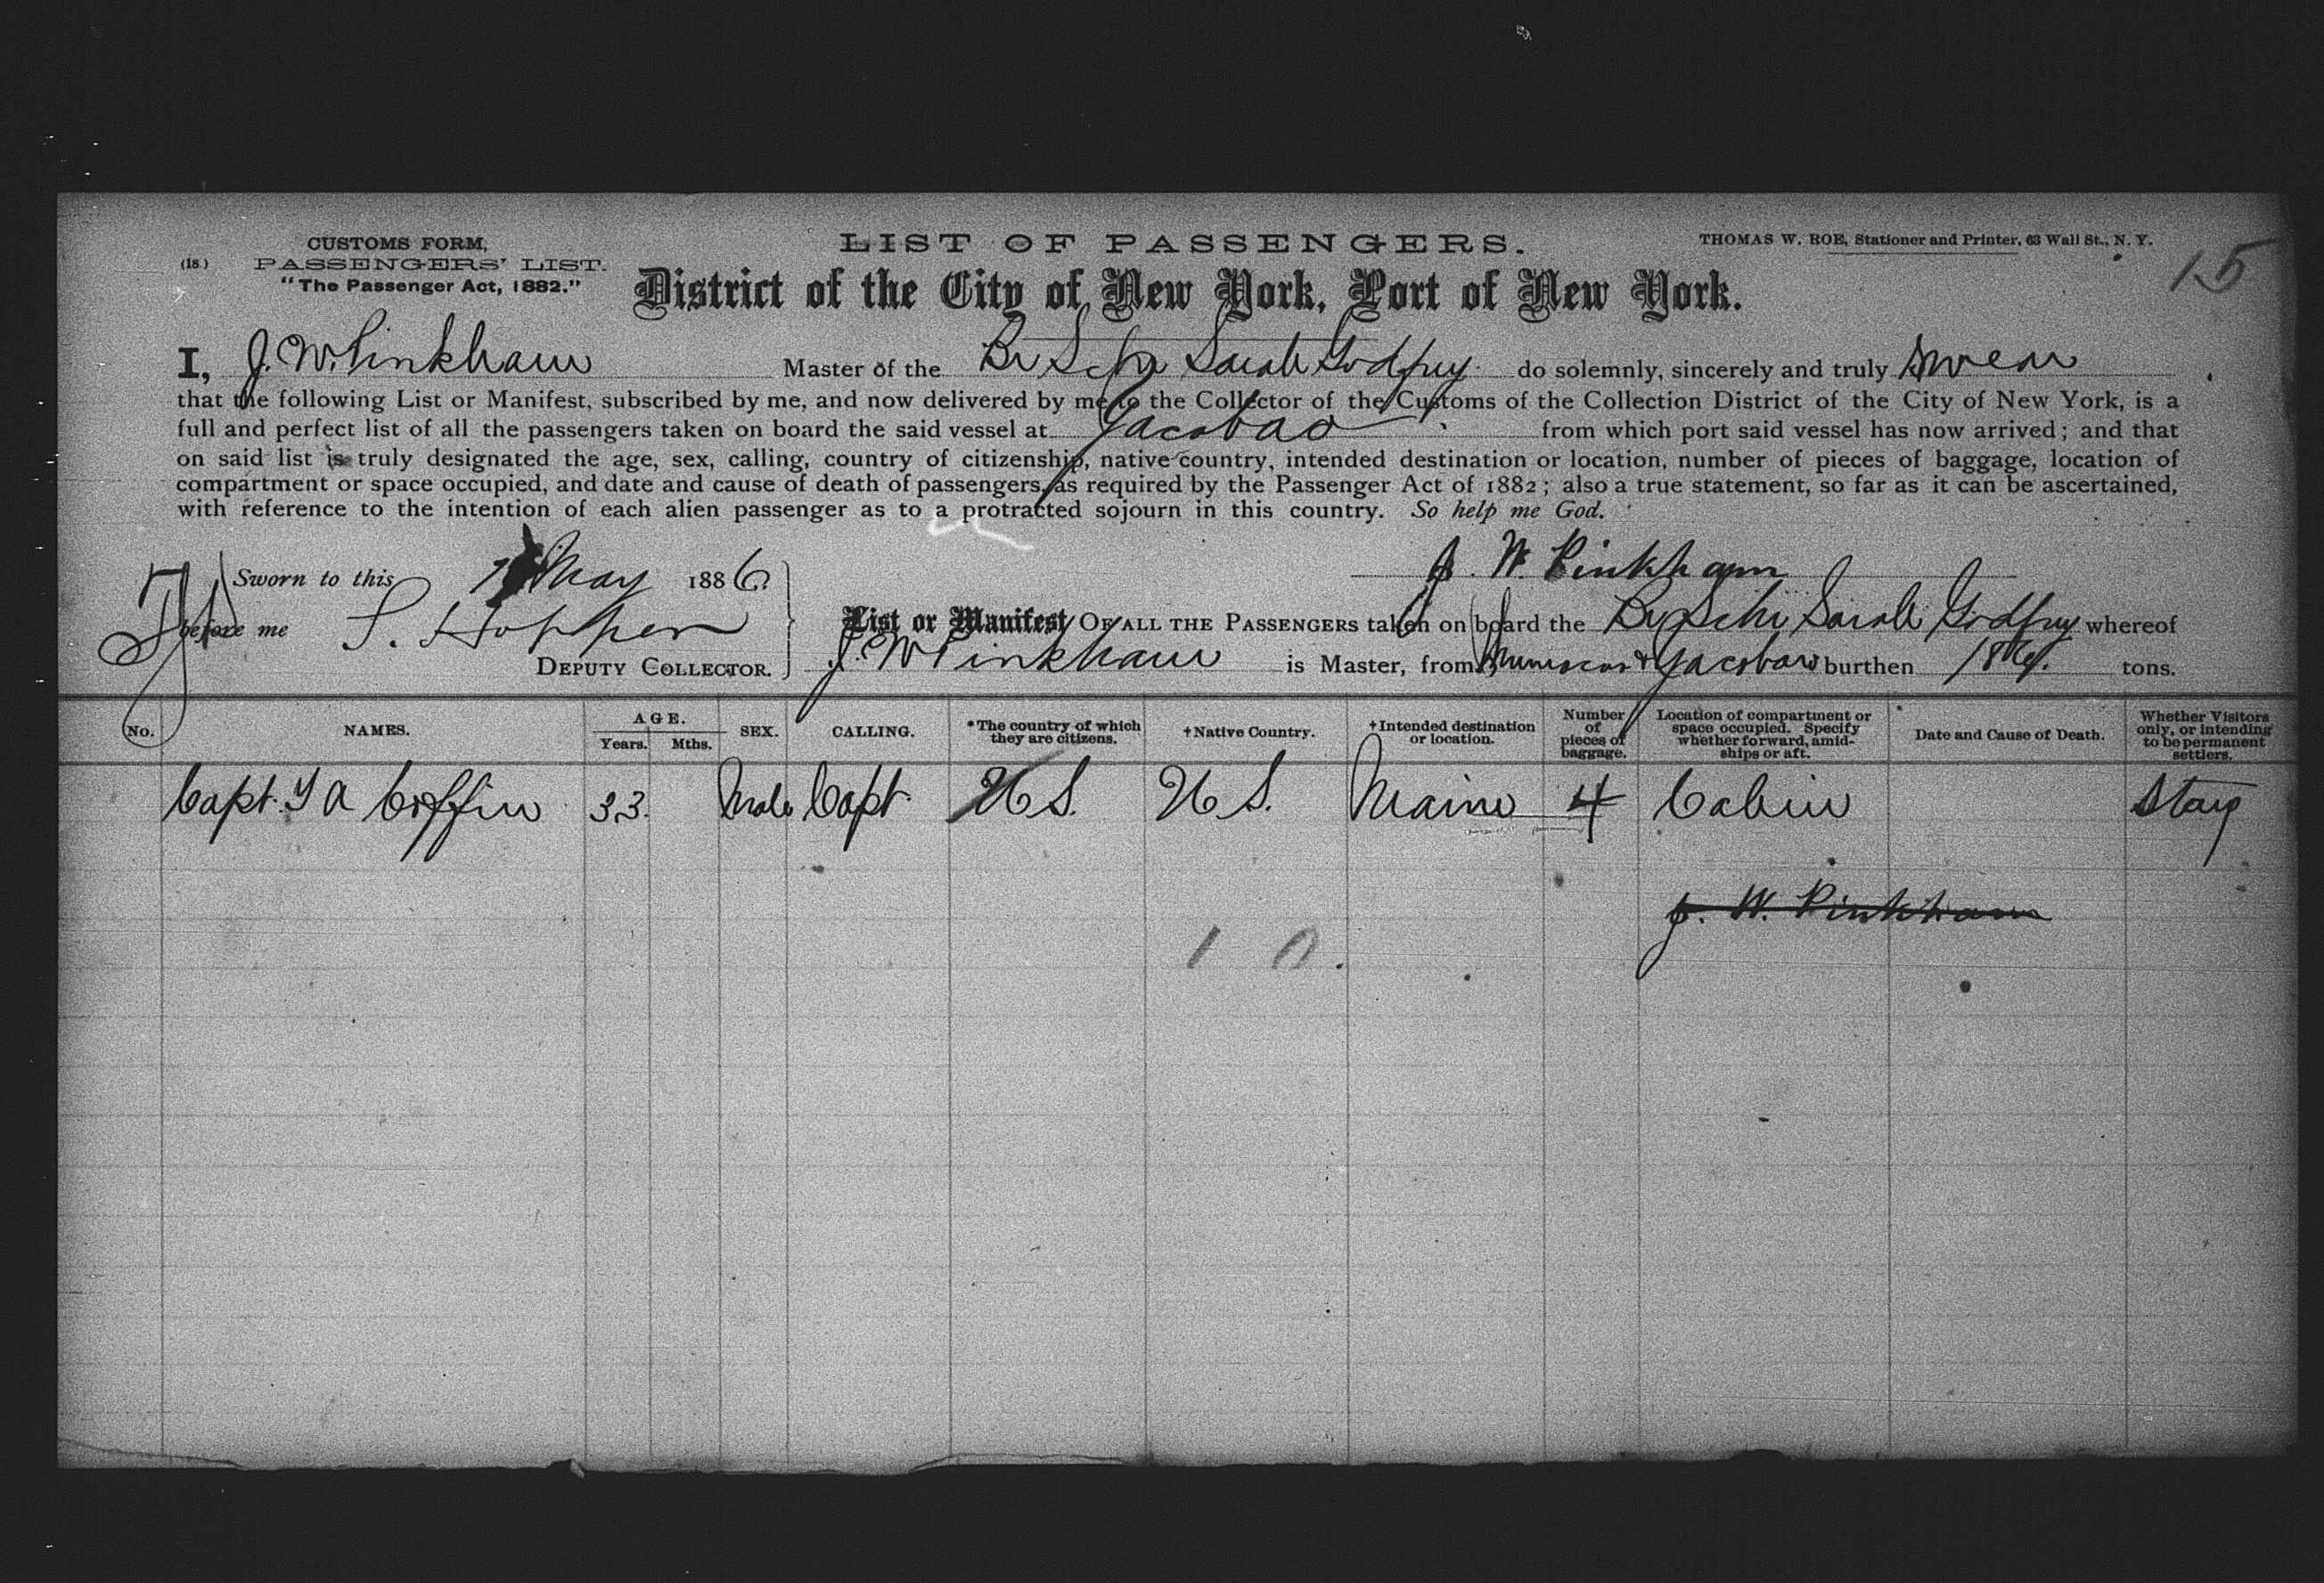 CUSTOMS FORM,
(18.) PASSENGERS' LIST.
"The Passenger Act, 1882."
LIST OF PASSENGERS.
THOMAS W. ROE, Stationer and Printer, 63 Wall St., N. Y.
15
District of the City of New York, Port of New York.
I, J. W. Pinkham Master of the Br Schr Sarah Godfrey do solemnly, sincerely and truly swear
that the following List or Manifest, subscribed by me, and now delivered by me to the Collector of the Customs of the Collection District of the City of New York, is a
full and perfect list of all the passengers taken on board the said vessel at Jacobao from which port said vessel has now arrived; and that
on said list is truly designated the age, sex, calling, country of citizenship, native country, intended destination or location, number of pieces of baggage, location of
compartment or space occupied, and date and cause of death of passengers, as required by the Passenger Act of 1882; also a true statement, so far as it can be ascertained,
with reference to the intention of each alien passenger as to a protracted sojourn in this country. So help me God.
Sworn to this 7 May 1886.
J. W. Pinkham
before me S. Hopper
DEPUTY COLLECTOR.
List or Manifest OF ALL THE PASSENGERS taken on board the Br Schr Sarah Godfrey whereof
J. W Pinkham is Master, from & Jacobao burthen tons.
No. NAMES. AGE. Years. Mths. SEX. CALLING. *The country of which they are citizens. †Native Country. †Intended destination or location. Number of pieces of baggage. Location of compartment or space occupied. Specify whether forward, amidships or aft. Date and Cause of Death. Whether Visitors only, or intending to be permanent settlers.
Capt. Y A Coffin 33. Male Capt. U S. U S. Maine 4 Cabin Stay
J. W. Pinkham
1 0.